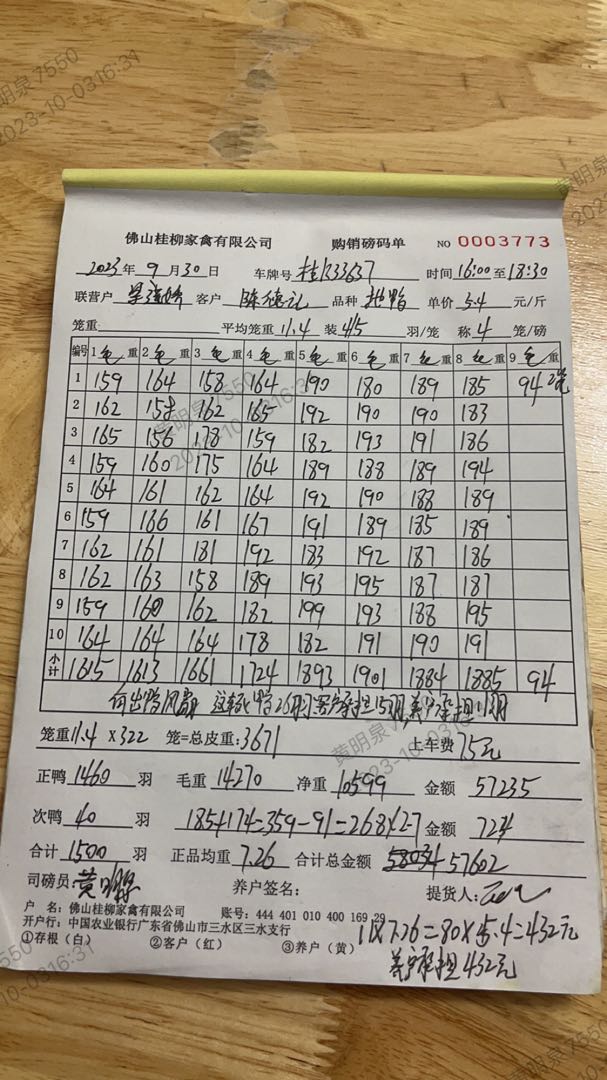 佛山桂柳家禽有限公司 购销磅码单 NO 0003773
2023年 9 月 30 日 车牌号 桂R33637 时间 16:00 至 18:30
联营户 客户 陈德礼 品种 单价 5.4 元/斤
笼重 平均笼重 11.4 装 4/5 羽/笼 称 4 笼/磅
编号 1 毛 重 2 毛 重 3 毛 重 4 毛 重 5 毛 重 6 毛 重 7 毛 重 8 毛 重 9 毛 重
1 159 164 158 164 190 180 189 185 94 2笼
2 162 158 162 165 192 190 190 183
3 165 156 178 159 182 193 191 186
4 159 160 175 164 189 188 189 194
5 164 161 162 164 192 190 188 189
6 159 166 161 167 191 189 185 189
7 162 161 181 192 183 192 187 186
8 162 163 158 189 193 195 187 187
9 159 160 162 182 199 193 188 195
10 164 164 164 178 182 191 190 191
小计 1615 1613 1661 1724 1893 1901 1884 1885 94
鸭26羽 客户承担15羽 养户承担11羽
笼重 11.4 X 322 笼=总皮重: 3671 上车费 75元
正鸭 1460 羽 毛重 14270 净重 10599 金额 57235
次鸭 40 羽 185+174=359-91=268X2.7 金额 724
合计 1500 羽 正品均重 7.26 合计总金额 58034 57602
司磅员: 黄明泉 养户签名: 提货人:
户 名: 佛山桂柳家禽有限公司 账号: 444 401 010 400 169 29
开户行: 中国农业银行广东省佛山市三水区三水支行
11X7.26=80X5.4=432元
①存根（白） ②客户（红） ③养户（黄）
养户承担432元
黄明泉 7550
2023-10-0316:31